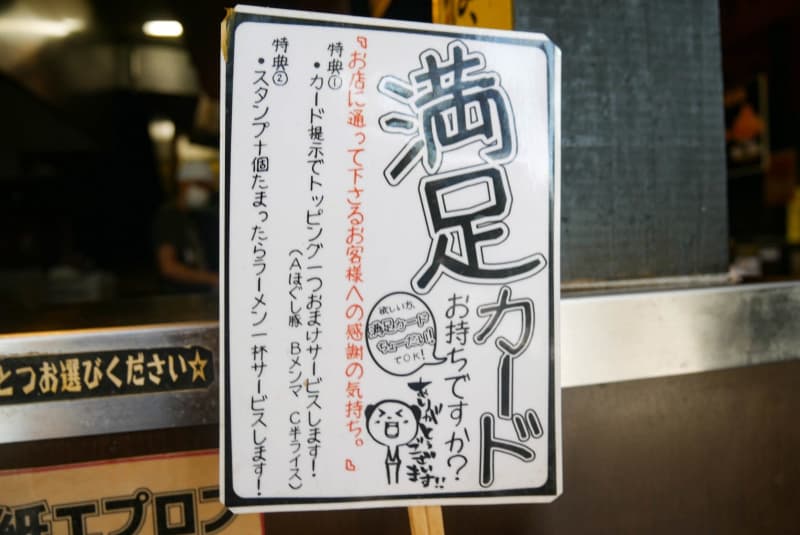 満足カード
お持ちですか?
欲しい方、
満足カード
でOK!
ありがとうございます!!
『お店に通って下さるお客様への感謝の気持ち。』
特典①
・カード提示でトッピング一つおまけサービスします!
(Aほぐし豚 Bメンマ C半ライス)
特典②
・スタンプ十個たまったらラーメン一杯サービスします!
とつお選びください☆
紙エプロン